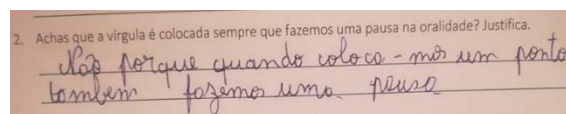 2. Achas que a vírgula é colocada sempre que fazemos uma pausa na oralidade? Justifica.
Não porque quando coloca-mos um ponto
tombem fazemos uma pausa